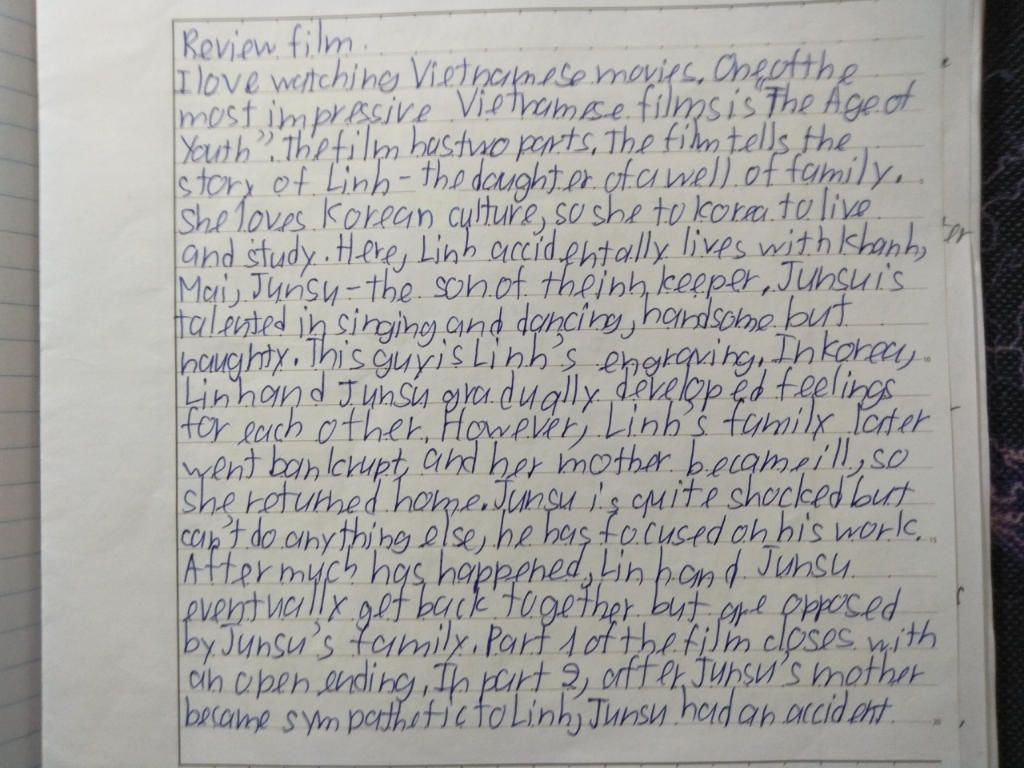 Review film.
I love watching Vietnamese movies. One of the
most impressive Vietnamese films is "The Age of
Youth". The film has two parts. The film tells the
story of Linh - the daughter of a well of family.
She loves Korean culture, so she to korea to live
and study. Here, Linh accidentally lives with Khanh,
Mai, Junsu - the son of the inn keeper. Junsu is
talented in singing and dancing, handsome but
naughty. This guy is Linh's engraving. In korea,
Linh and Junsu gradually developed feelings
for each other. However, Linh's family later
went bankrupt, and her mother became ill, so
she returned home. Junsu is quite shocked but
can't do anything else, he has focused on his work.
After much has happened, Linh and Junsu
eventually get back together but are opposed
by Junsu's family. Part 1 of the film closes with
an open ending. In part 2, after Junsu's mother
became sympathetic to Linh, Junsu had an accident
ter